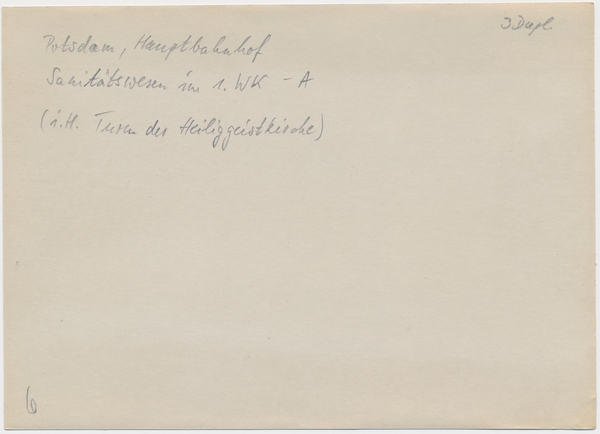 3 Dupl
Potsdam, Hauptbahnhof
Sanitätswesen im 1. WK - A
(i.H. Turm der Heiliggeistkirche)
6